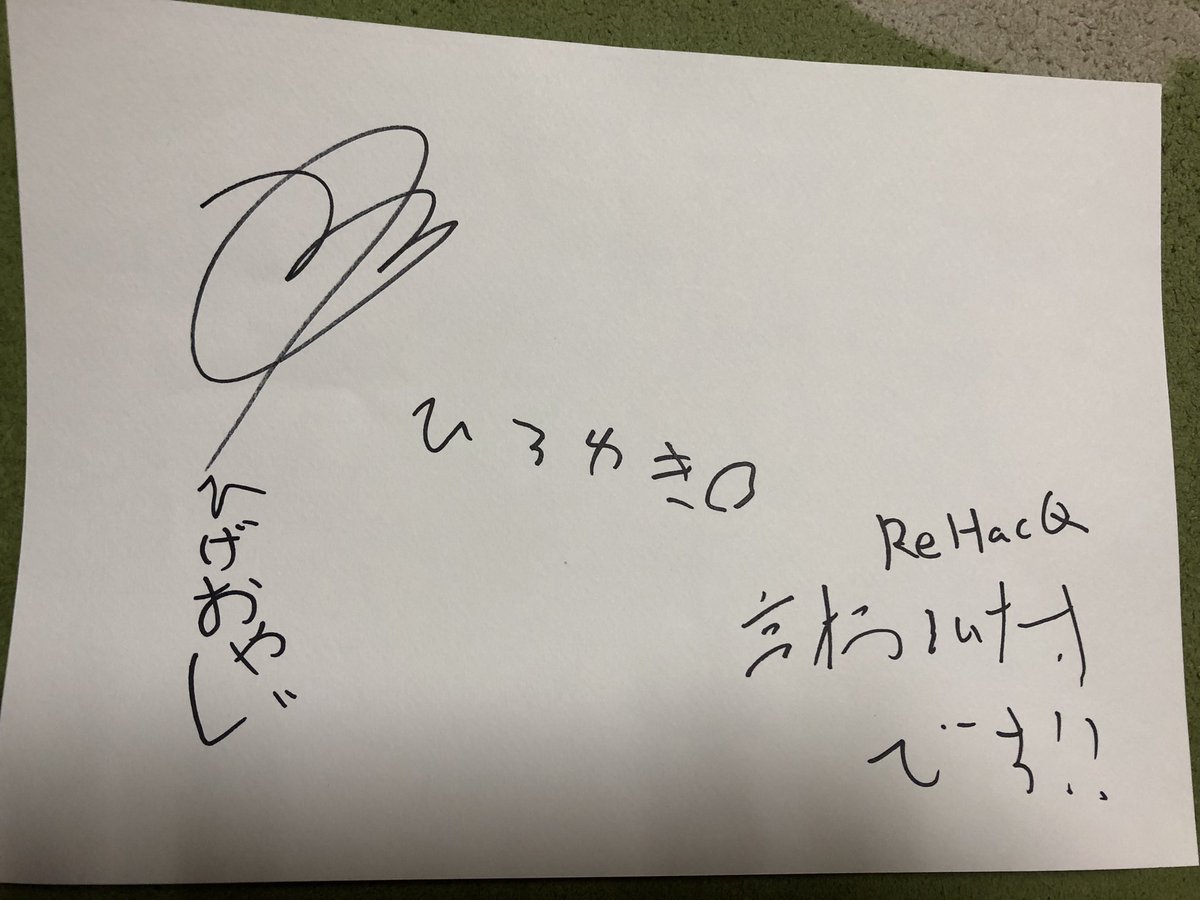 ひげおやじ
ひろゆき
ReHacQ
高橋弘樹
です!!